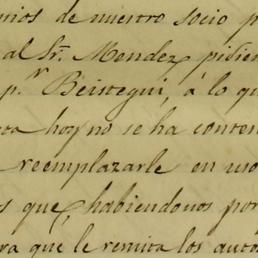 nios de nuestro socio p
al Sr. Mendez pisien
p.r Beistegui, á lo qu
ta hoy no se ha conten
reemplazarle en uso
s que, habiendonos por
ra que le remita los autos